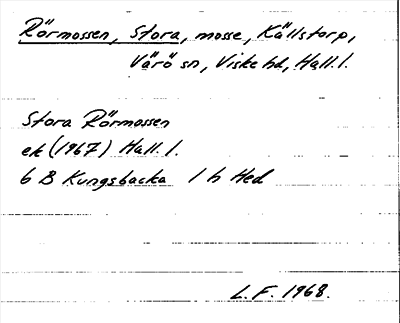 Rörmossen, Stora, mosse, Källstorp,
Värö sn, Viske hd, Hall. l.
Stora Rörmossen
ek (1967) Hall. l.
6 B Kungsbacka 1 h Hed
L. F. 1968.